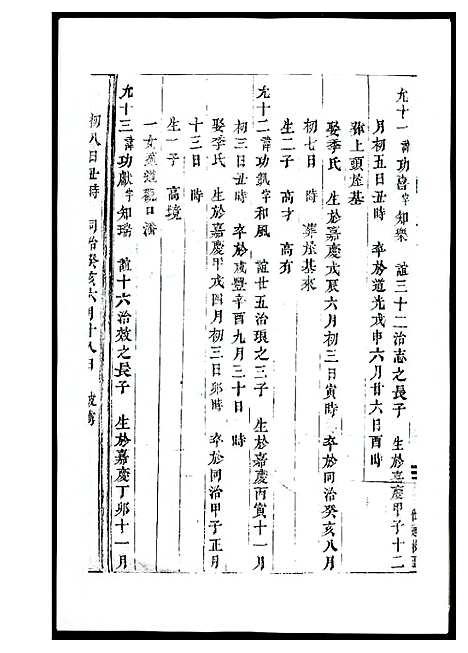 允十一 諱功喜 字知樂 誼三十二治志之長子 生於嘉慶甲子十二
月初五日丑時 卒於道光戊申六月廿六日酉時
上頭垄基
娶季氏 生於嘉慶戊辰六月初三日寅時 卒於同治癸亥八月
初七日 時 葬垄基來
生二子 高才 高有
允十二 諱功凱 字和風 誼廿五治琅之三子 生於嘉慶丙寅十一月
初三日丑時 卒於咸豐辛酉九月三十日 時
娶季氏 生於嘉慶甲戌四月初三日卯時 卒於同治甲子正月
十三日 時
生一子 高境
一女 適道觀口潘
允十三 諱功獻 字知瑞 誼十六治效之長子 生於嘉慶丁卯十一月
初八日丑時 同治癸亥六月十八日